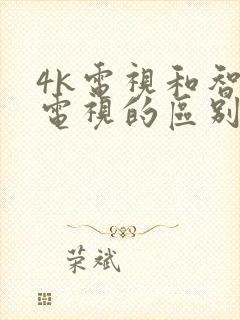 4k電視和智
電視的區别
荣斌